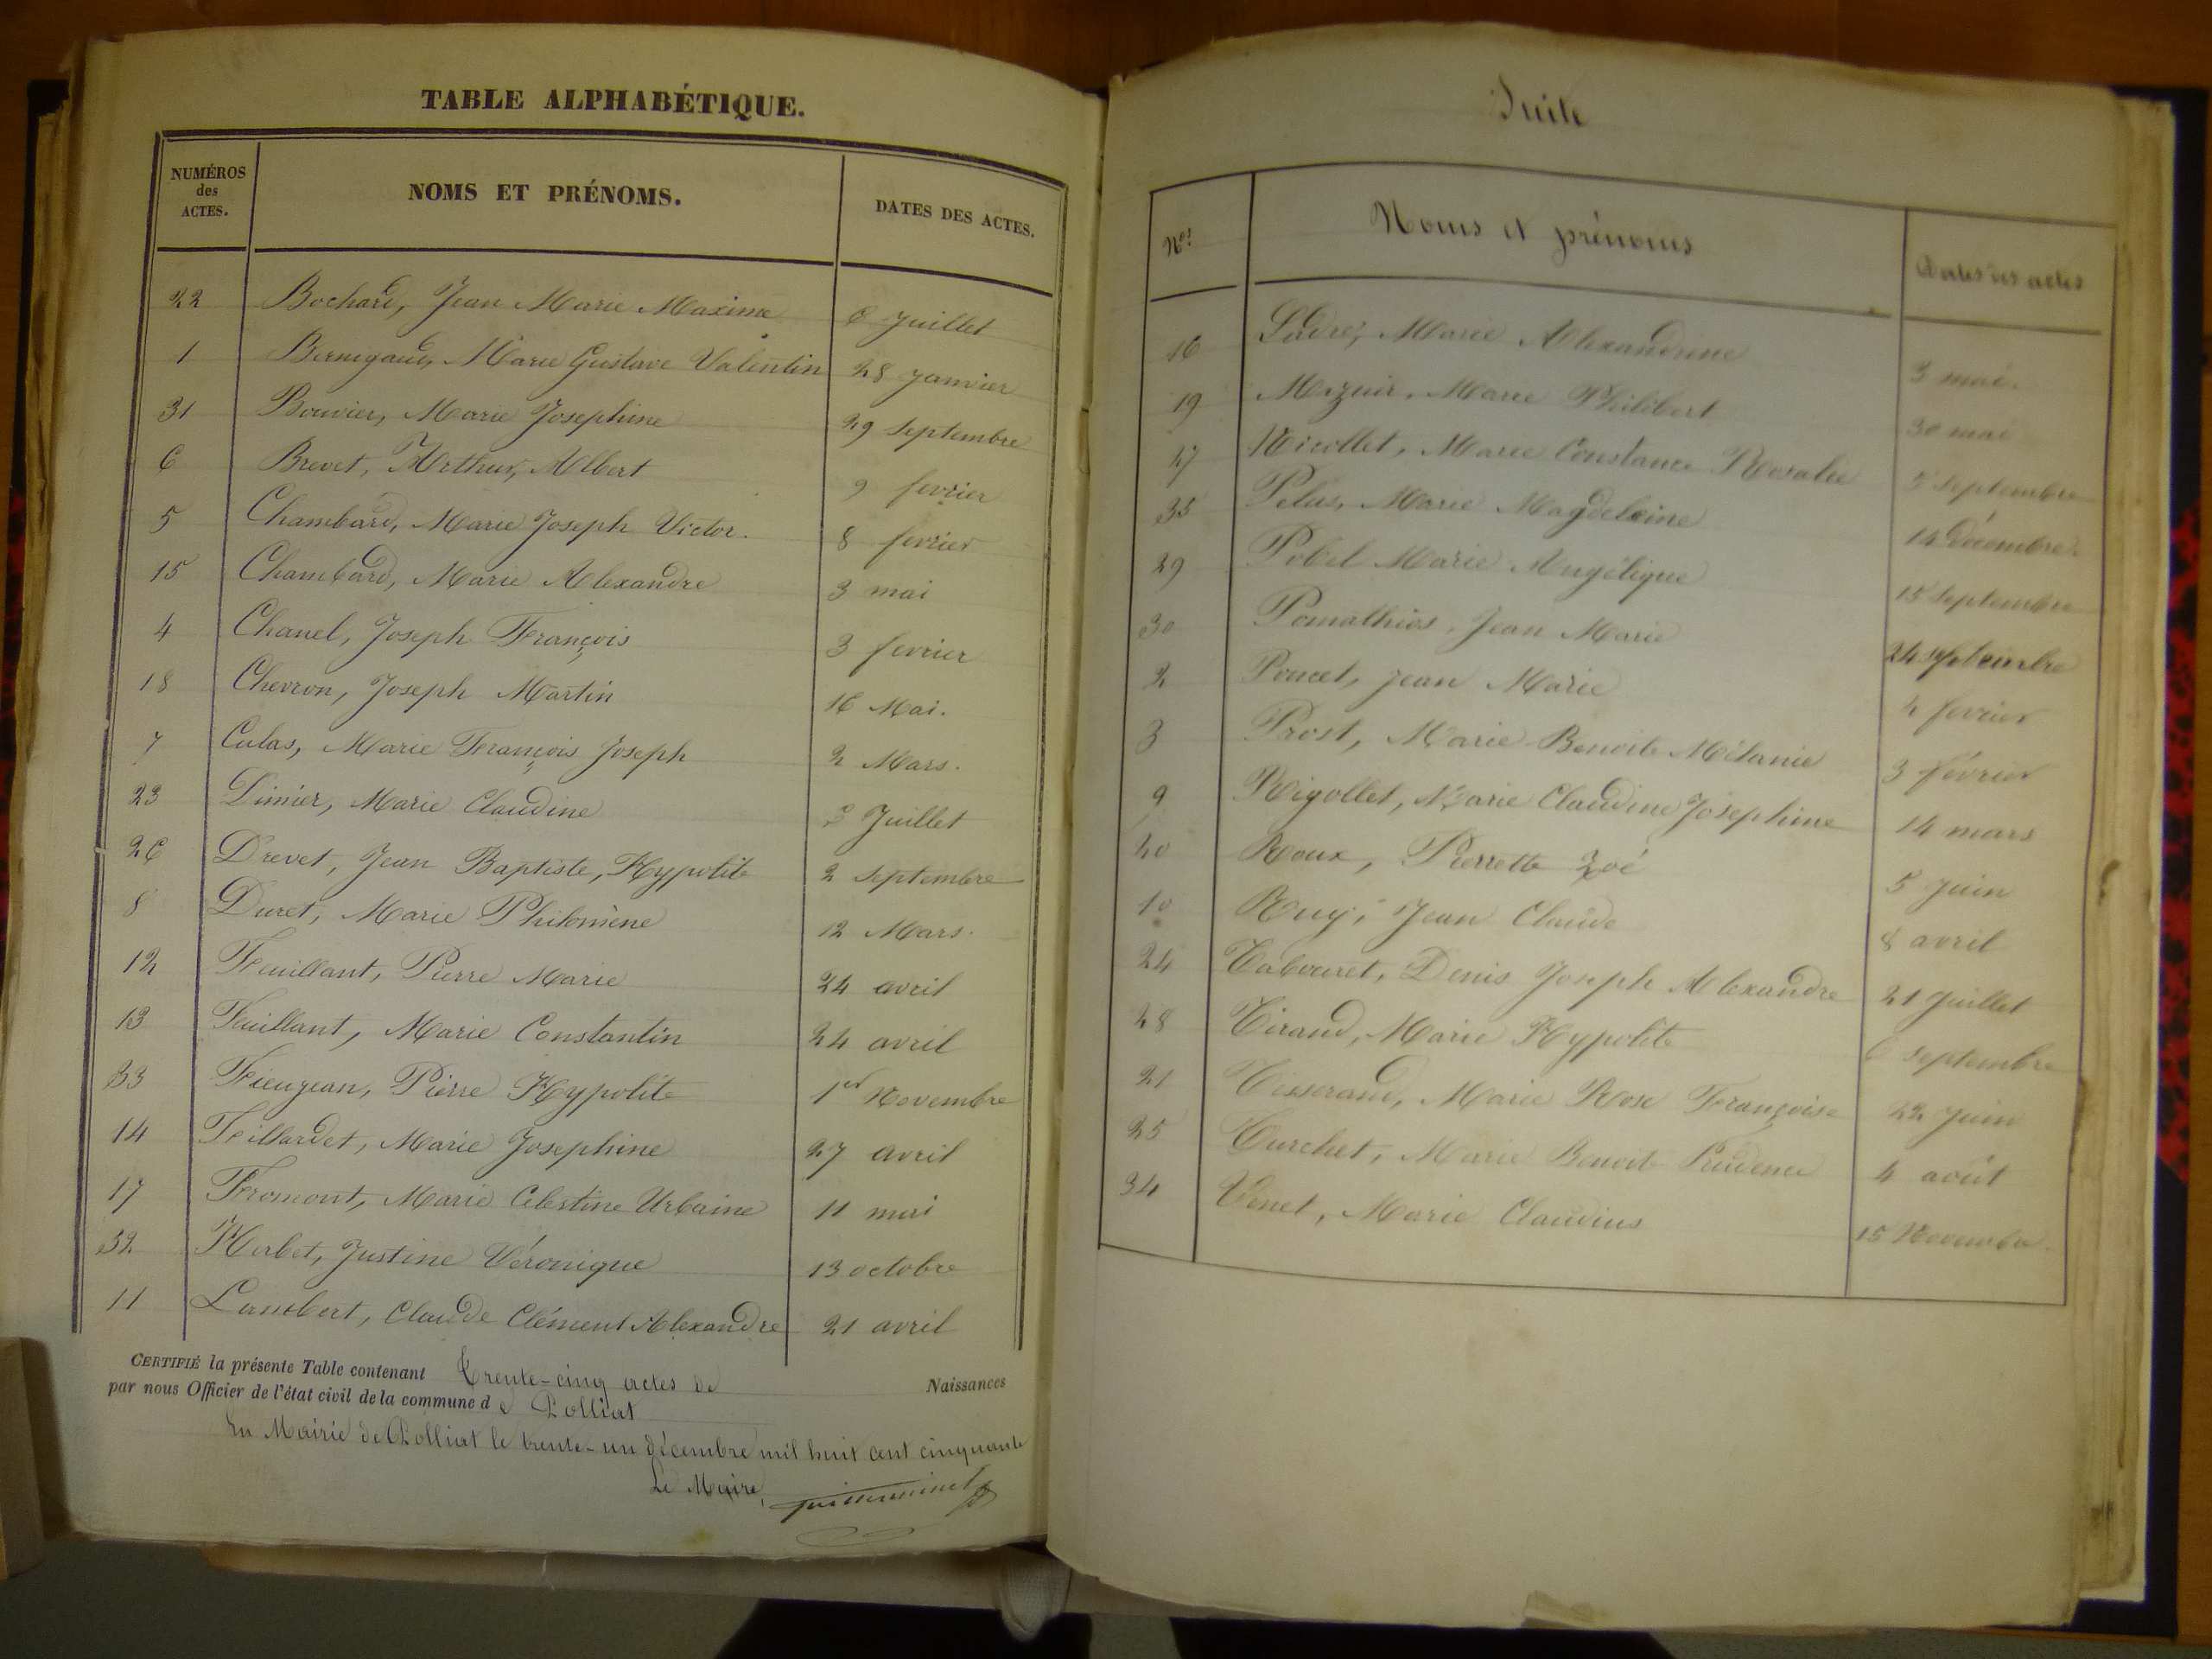 TABLE ALPHABÉTIQUE.
NUMÉROS des ACTES. NOMS ET PRÉNOMS. DATES DES ACTES.
22 Bochard, Jean Marie Maxime 6 Juillet
1 Bernigaud, Marie Gustave Valentin 28 Janvier
31 Bouvier, Marie Josephine 29 Septembre
6 Brevet, Arthur, Albert 9 fevrier
5 Chambard, Marie Joseph Victor. 8 fevrier
15 Chambard, Marie Alexandre 3 mai
4 Chanel, Joseph François 3 fevrier
18 Chevron, Joseph Martin 16 Mai.
7 Culas, Marie François Joseph 2 Mars.
23 Dimier, Marie Claudine Juillet
26 Drevet, Jean Baptiste, Hypolite 2 Septembre
8 Duret, Marie Philomène 12 Mars.
12 Feuillant, Pierre Marie 24 avril
13 Feuillant, Marie Constantin 24 avril
33 Fieugean, Pierre Hypolite 1er Novembre
14 Fillardet, Marie Josephine 27 avril
17 Fromont, Marie Celestine Urbaine 11 mai
32 Herbet, Justine Véronique 13 octobre
11 Lambert, Claude Clément Alexandre 21 avril
CERTIFIÉ la présente Table contenant Trente-cinq actes de Naissances
par nous Officier de l'état civil de la commune de Polliat
En Mairie de Polliat le trente-un décembre mil huit cent cinquante
Le Maire,
Suite
Nos Noms et prénoms Dates des actes
16 Ladre, Marie Alexandrine 3 mai.
19 Mazuir, Marie Philibert 30 mai
27 Nicollet, Marie Constance Rosalie 5 Septembre
35 Pelus, Marie Magdeleine 14 Décembre.
29 Pobel Marie Angélique 15 Septembre
30 Pomathios, Jean Marie 24 septembre
2 Poncet, Jean Marie 2 fevrier
3 Prost, Marie Benoite Mélanie 3 février
9 Rigollet, Marie Claudine Josephine 14 mars
20 Roux, Pierrette Zoé 5 Juin
10 Ruy, Jean Claude 8 avril
24 Tabouret, Denis Joseph Alexandre 21 Juillet
28 Tirand, Marie Hypolite 6 Septembre
21 Tisserand, Marie Rose Françoise 22 Juin
25 Turchet, Marie Benoit Prudence 4 août
34 Venet, Marie Claudius 15 Novembre.